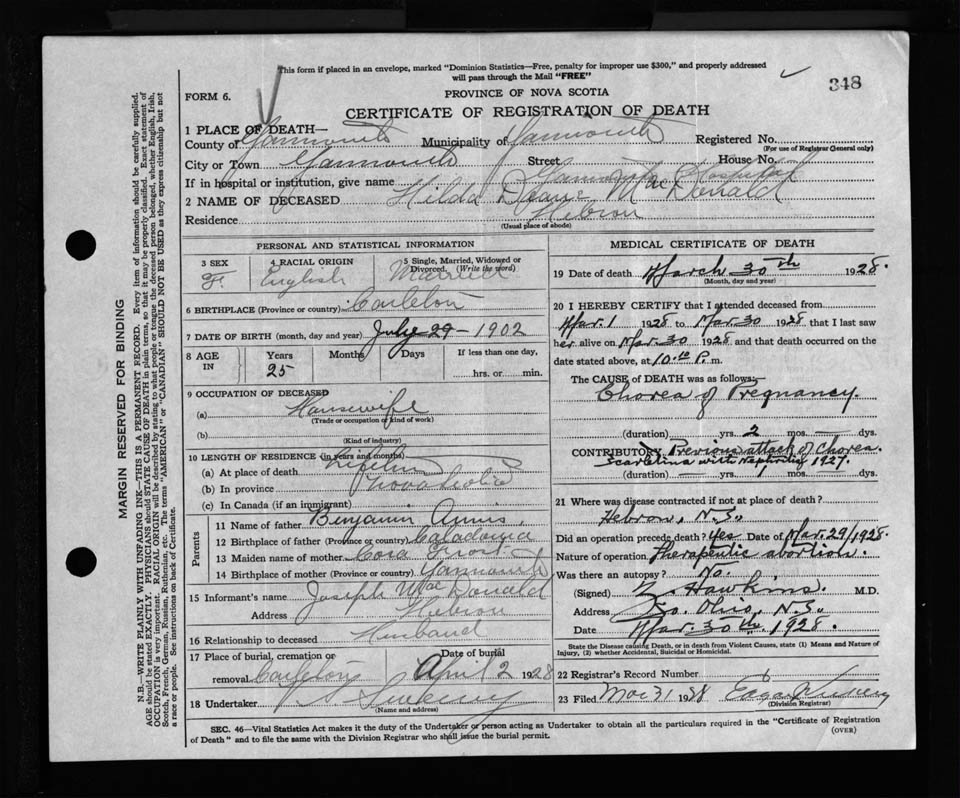 This form if placed in an envelope, marked "Dominion Statistics—Free, penalty for improper use $300," and properly addressed
will pass through the Mail "FREE"
348
FORM 6.
PROVINCE OF NOVA SCOTIA
CERTIFICATE OF REGISTRATION OF DEATH
1 PLACE OF DEATH—
County of Yarmouth Municipality of Yarmouth Registered No.
(For use of Registrar General only)
City or Town Yarmouth Street House No.
If in hospital or institution, give name Yarmouth Hospital
2 NAME OF DECEASED Hilda MacDonald
Residence Hebron
(Usual place of abode)
PERSONAL AND STATISTICAL INFORMATION
3 SEX F.
4 RACIAL ORIGIN English
5 Single, Married, Widowed or Divorced. (Write the word) Married
6 BIRTHPLACE (Province or country) Carleton
7 DATE OF BIRTH (month, day and year) July 29 - 1902
8 AGE IN Years 25 Months Days If less than one day,
hrs. or min.
9 OCCUPATION OF DECEASED
(a) Housewife
(Trade or occupation of kind of work)
(b)
(Kind of industry)
10 LENGTH OF RESIDENCE (in years and months)
(a) At place of death Lifetime
(b) In province Nova Scotia
(c) In Canada (if an immigrant)
Parents
11 Name of father Benjamin Annis
12 Birthplace of father (Province or country)
13 Maiden name of mother Cora
14 Birthplace of mother (Province or country) Yarmouth
15 Informant's name Joseph MacDonald
Address Hebron
16 Relationship to deceased Husband
17 Place of burial, cremation or Date of burial
removal Carleton April 2 1928
18 Undertaker Sweeny
(Name and address)
MEDICAL CERTIFICATE OF DEATH
19 Date of death March 30th 1928.
(Month, day and year)
20 I HEREBY CERTIFY that I attended deceased from
Mar. 1 1928 to Mar 30 1928 that I last saw
her alive on Mar. 30 1928 and that death occurred on the
date stated above, at 10.10 P. m.
The CAUSE of DEATH was as follows:
Chorea of Pregnancy.
(duration) — yrs. 2 mos. — dys.
CONTRIBUTORY Previous attack of Chorea.
Scarletina with Nephritis 1927.
(duration) — yrs. 1 mos. — dys.
21 Where was disease contracted if not at place of death?
Hebron, N.S.
Did an operation precede death? Yes Date of Mar. 29/1928.
Nature of operation Therapeutic abortion.
Was there an autopsy? No.
(Signed) Z. Hawkins. M.D.
Address So. Ohio, N.S.
Date Mar. 30th. 1928.
State the Disease causing Death, or in death from Violent Causes, state (1) Means and Nature of
Injury, (2) whether Accidental, Suicidal or Homicidal.
22 Registrar's Record Number
23 Filed Mar 31 1928
(Division Registrar)
SEC. 46—Vital Statistics Act makes it the duty of the Undertaker or person acting as Undertaker to obtain all the particulars required in the "Certificate of Registration
of Death" and to file the same with the Division Registrar who shall issue the burial permit.
(OVER)
MARGIN RESERVED FOR BINDING
N.B.—WRITE PLAINLY WITH UNFADING INK—THIS IS A PERMANENT RECORD. Every item of information should be carefully supplied.
AGE should be stated EXACTLY. PHYSICIANS should STATE CAUSE OF DEATH in plain terms, so that it may be properly classified. Exact statement of
OCCUPATION is very important. RACIAL ORIGIN will be described by stating to what people or tongue the deceased person belonged, whether English, Irish,
Scotch, French, German, Russian, Ruthenian, etc. The terms "AMERICAN" or "CANADIAN" SHOULD NOT BE USED as they express citizenship but not
a race or people. See instructions on back of Certificate.